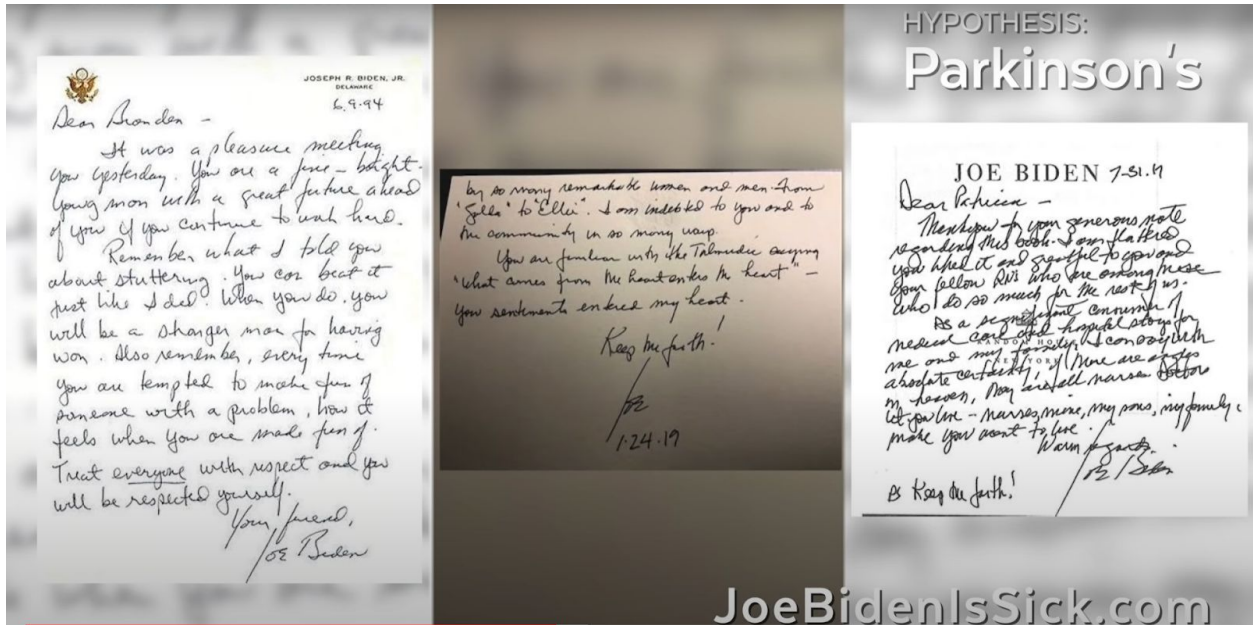 HYPOTHESIS:
Parkinson's
JOSEPH R. BIDEN, JR.
DELAWARE
6.9.94
Dear Branden -
It was a pleasure meeting
you yesterday. You are a fine - bright -
young man with a great future ahead
of you if you continue to work hard.
Remember what I told you
about stuttering. You can beat it
just like I did. When you do, you
will be a stronger man for having
won. Also remember, every time
you are tempted to make fun of
someone with a problem, how it
feels when you are made fun of.
Treat everyone with respect and you
will be respected yourself.
Your friend,
Joe Biden
by so many remarkable women and men. From
"Golda" to "Ellie". I am indebted to you and to
the community in so many ways.
You are familiar with the Talmudic saying
"what comes from the heart enters the heart" -
your sentiments entered my heart.
Keep the faith!
Joe
1.24.19
JOE BIDEN 7-31-19
Dear Patricia -
Thank you for your generous note
regarding this book. I am flattered
you liked it and grateful to you and
your fellow RN's who are among those
who do so much for the rest of us.
As a significant consumer of
medical care and hospital stays for
me and my family, I can say with
RANDOM HOUSE
NEW YORK
absolute certainty, if there are angels
in heaven, they are all nurses. Doctors
let you live - nurses, mine, my sons, my family,
make you want to live.
Warm regards,
Joe Biden
Ps Keep the faith!
JoeBidenIsSick.com